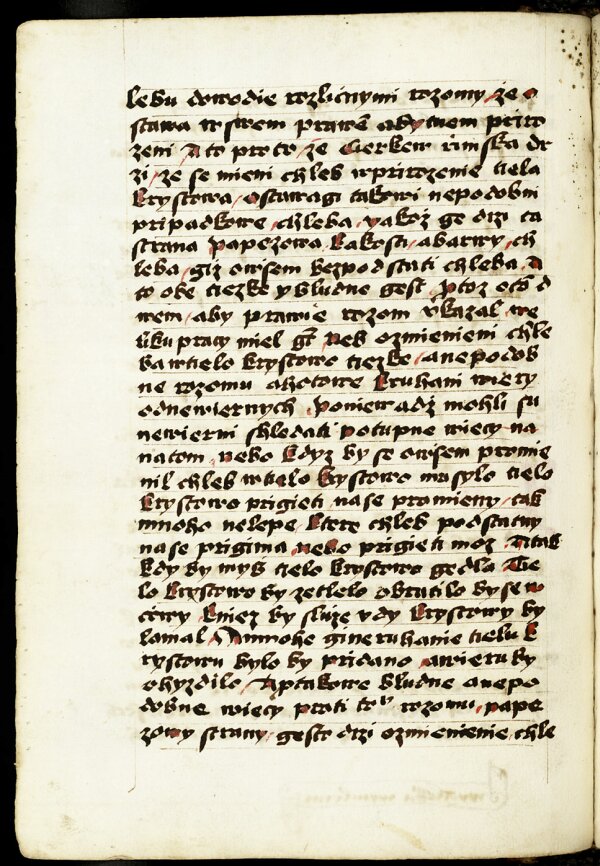 lebu dowodie rozlicnymi rozomy ze o
stawa w swem prawe a bytnem priro
zeni A to proto ze Cierkew rimska dr
zi ze se mieni chleb w prirozenie tiela
krystowa ostawagi takowi nepodobni
pripadkowe chleba yakoz ge dizi ta
strana papezowa kakosti a barwy ch
leba giz owsem bez podstati chleba A
to obe tiezke y bludne gest Ptoz oto d
wem aby prawie rozom vkazal we
liku pracy miel gt neb ozmienieni chle
ba w tielo krystowo tiezke a nepodob
ne rozomu a hotowe kruhani wiery
od newiernych poniewadz mohli su
newierni shledati potupne wiecy na
natom nebo kdyz by se owsem promie
nil chleb w tielo krystowo musylo tielo
krystowo prigieti na se promieny tak
mnoho nelepe ktere chleb podstatny
na se prigima nebo prigieti moz A tak
kdy by mys tielo krystowo gedlo Tie
lo krystowo by zetlelo obratilo by se w
cerwy kniez by sluze vdy krystowy by
lamal A mnohe gine ruhanie tielu k
rystowu bylo by pridano a wieru by
ohyzdilo A ptakowe bludne a nepo
dobne wiecy proti to rozomu pape
zowy strany gesto dizi ozmienienie chle